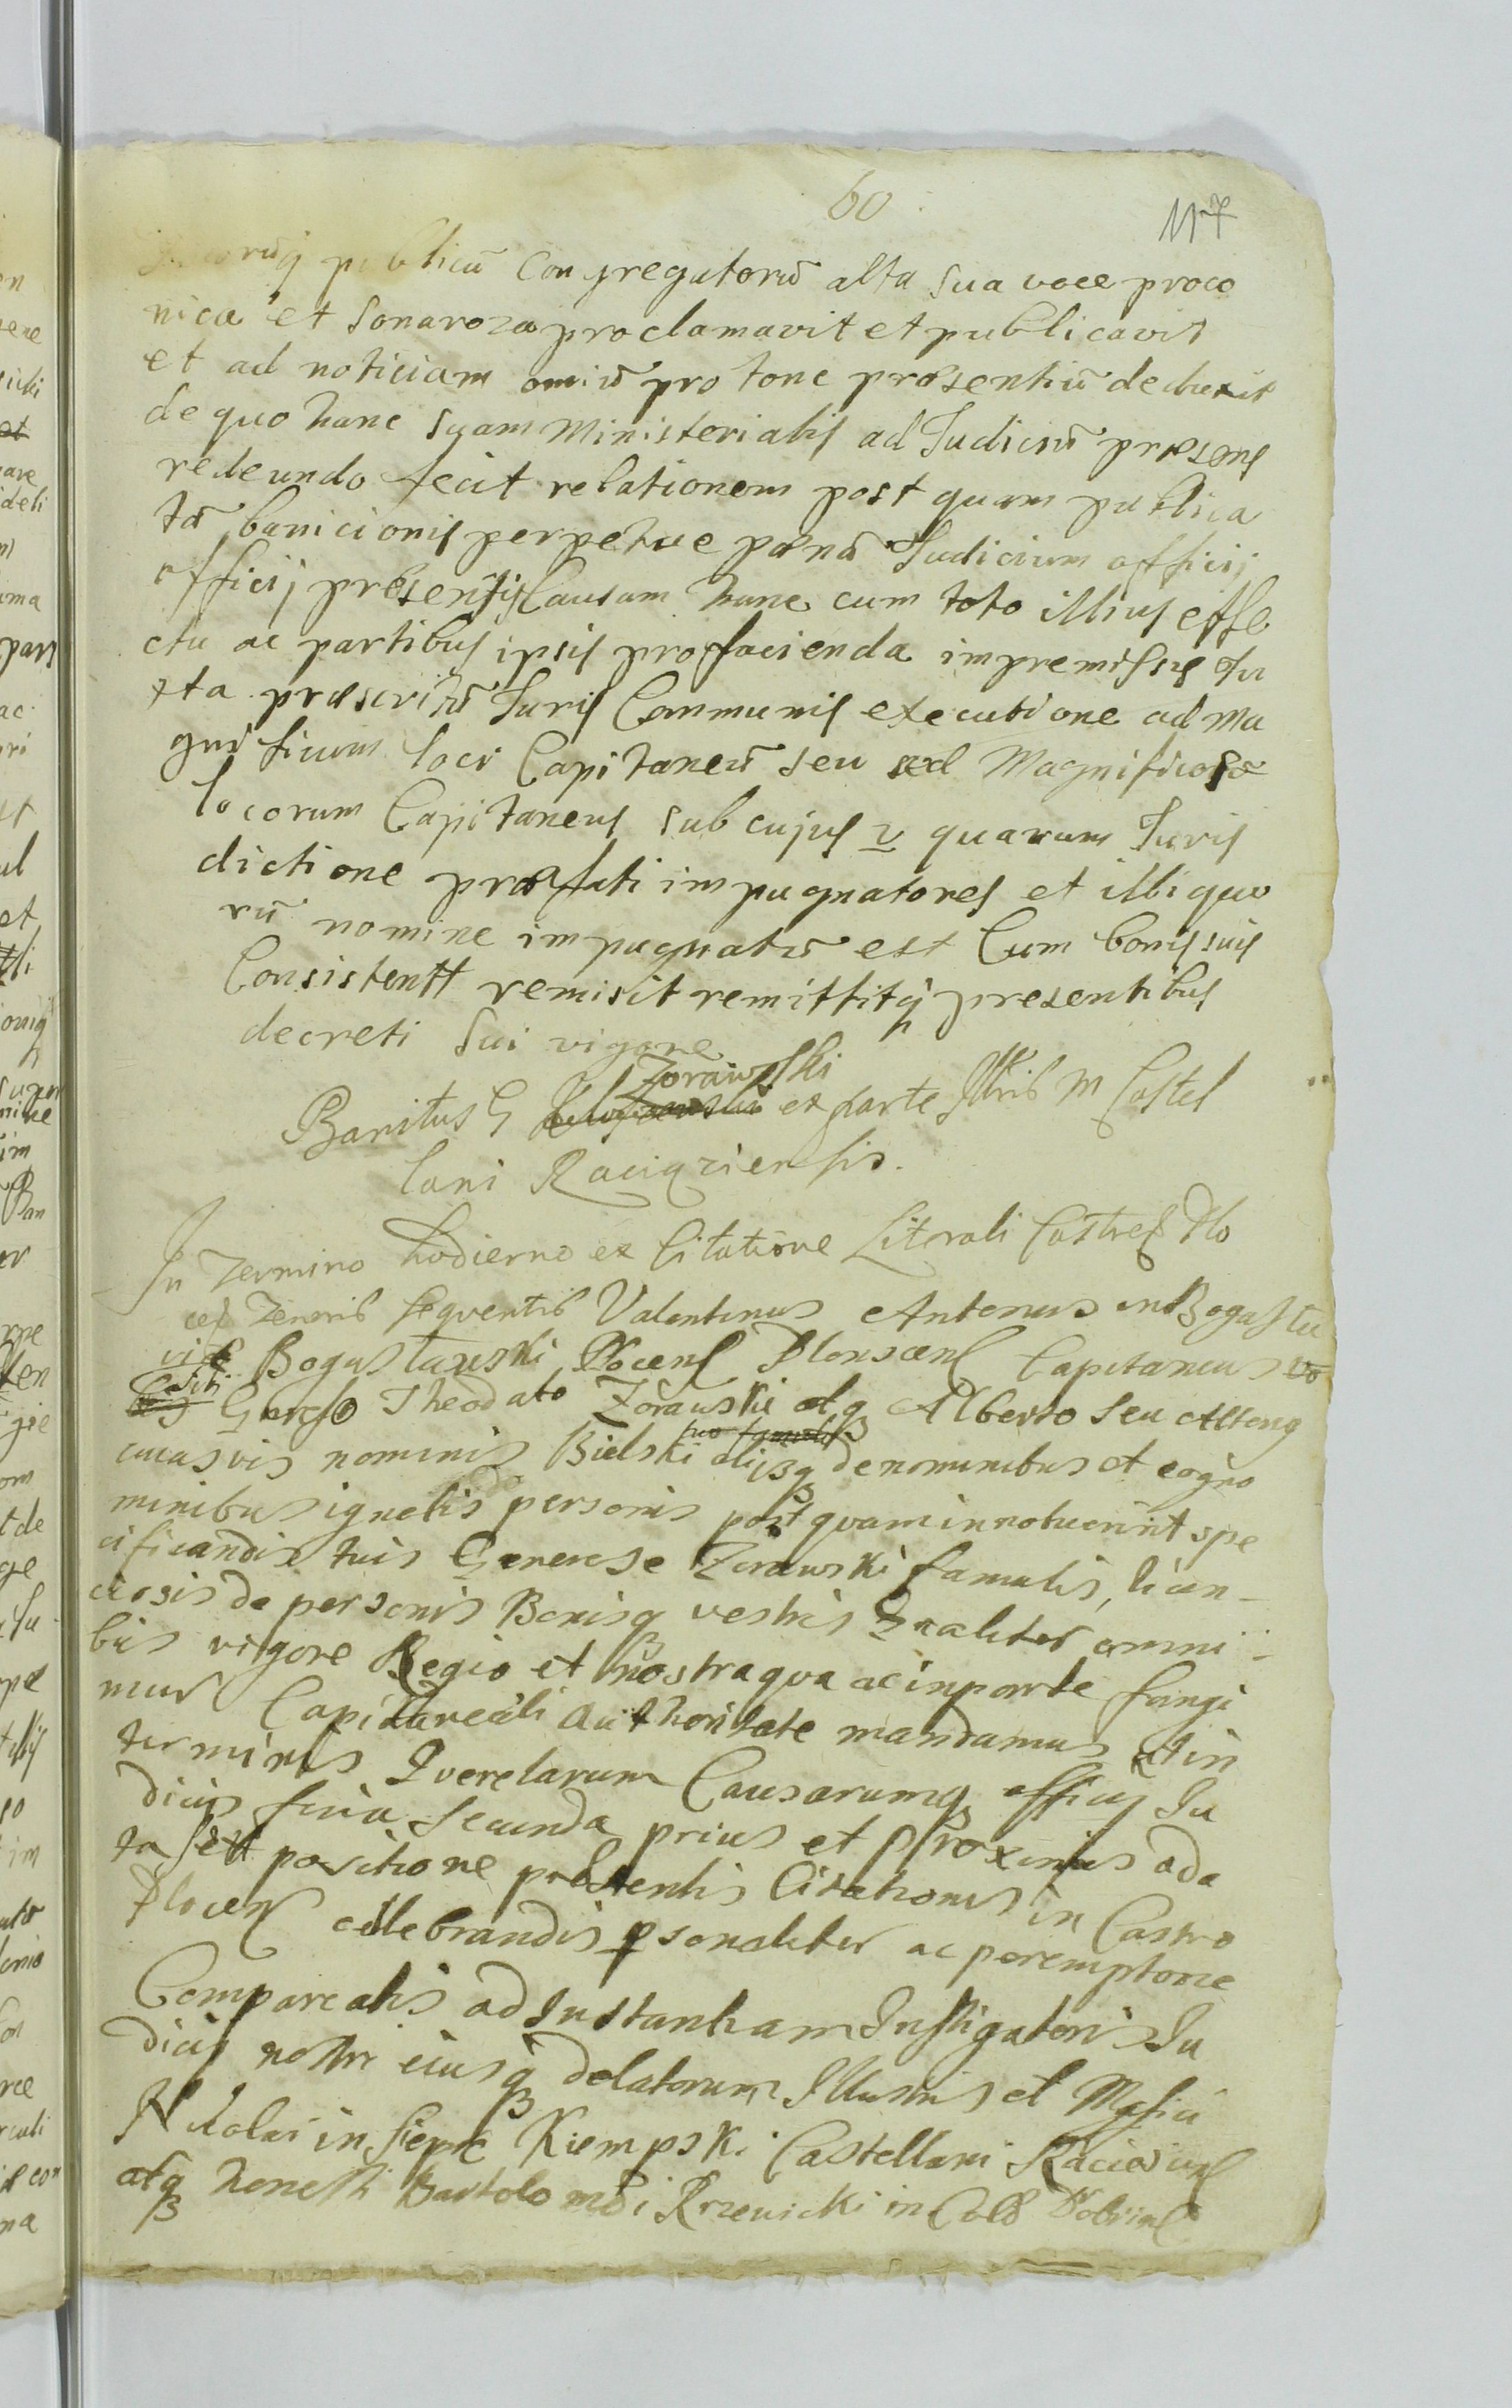 60
117
publicū Congregatorū alta sua voce proco
nica et sonaroza proclamavit et publicavit
et ad noticiam omiū pro tonc præsentiū deduxit
de quo hanc suam Ministerialis ad Judiciū præsens
redeundo fecit relationem post quam publica
tā banicionis perpetue pænā Judicium officij
officij præsentis Causam hanc cum toto illius effe
ctu ac partibus ipsis pro facienda in premissis Ju
xta præscritū Juris Communis executione ad Ma
gnificum loci Capitaneū seu ad Magnificos
locorum Capitaneus sub cujus v quarum Juris
dictione præfati impugnatores et illi quo
rū nomine impugnatū est Cum bonis suis
Consistentt remisit remittitq presentibus
decreti sui vigore
Zorawski
Banitus G ex parte Illris M Castel
lani Raciąziensis.
In Termino hodierno ex Citatione Literali Castreñ Plo
ceñ Tenoris sequentis Valentinus Antonius in Bogusla
vice Boguslawski Ploceñ Plonsceñ Capitaneus
Gnroso Theodato Zorawski atq Alberto seu alterius
cuiusvis nominis Bielski aliisq de nominibus et cogno
minibus ignotis personis postquam innotuerint spe
cificandis tuis Generose Zorawski famulis, licen
ciosis de personis Bonisq vestris Gnraliter omni
bus vigore Regio et nostra qva ac in parte fungi
mur Capitaneali Authoritate mandamus ut in
terminis Qverelarum Causarumq officij Ju
dicijs feria secunda prius et proximius ada
ta seu positione præsentis Citationis in Castro
Ploceñ celebrandis psonaliter ac peremptorie
Compareatis ad Instantiam Instigatoris Ju
dicij nostri eiusq delatorum Illustris et Mgfici
Nicolai in Siepc Kiempski Castellani Raciązieñ
atq honesti Bartolomæi Rzewicki in Dobrineñ